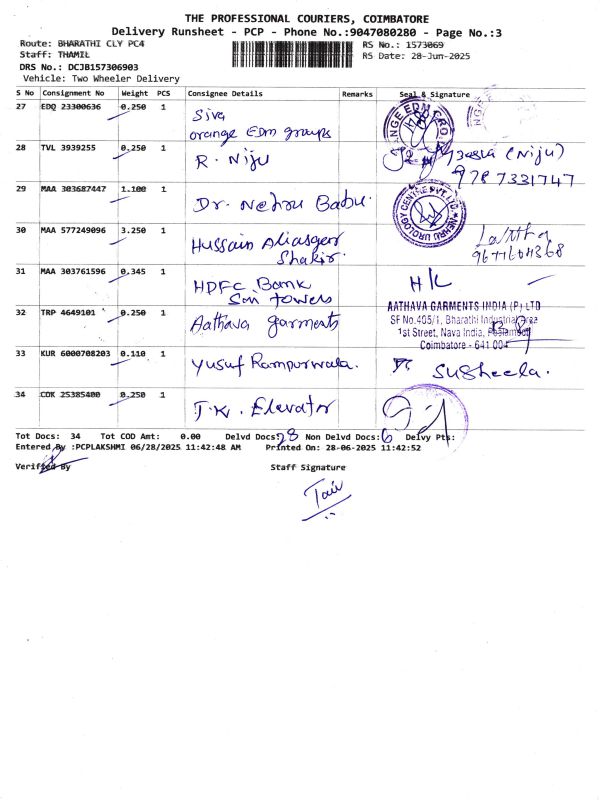 THE PROFESSIONAL COURIERS, COIMBATORE
Delivery Runsheet - PCP - Phone No.:9047080280 - Page No.:3
Route: BHARATHI CLY PC4
RS No.: 1573069
Staff: THAMIL
RS Date: 28-Jun-2025
DRS No.: DCJB157306903
Vehicle: Two Wheeler Delivery
S No Consignment No Weight PCS Consignee Details Remarks Seal & Signature
27 EDQ 23300636 0.250 1 Siva
orange EDM groups
28 TVL 3939255 0.250 1 R. Niju (Niju)
9787331747
29 MAA 303687447 1.100 1 Dr. Nehru Babu.
NEHRU UROLOGY CENTRE PVT. LTD
30 MAA 577249096 3.250 1 Hussain Aliasger
Shakir.
31 MAA 303761596 0.345 1 HDFC Bank H/L
Son towers
32 TRP 4649101 0.250 1 Aathava garments
AATHAVA GARMENTS INDIA (P) LTD
SF No.405/1, Bharathi Industrial Area
1st Street, Nava India,
Coimbatore - 641 004
33 KUR 6000708203 0.110 1 Yusuf Rampurwala. Susheela.
34 COK 25385400 0.250 1 T.K. Elevator
Tot Docs: 34 Tot COD Amt: 0.00 Delvd Docs: 28 Non Delvd Docs: 6 Delvy Pts:
Entered By :PCPLAKSHMI 06/28/2025 11:42:48 AM Printed On: 28-06-2025 11:42:52
Verified By Staff Signature